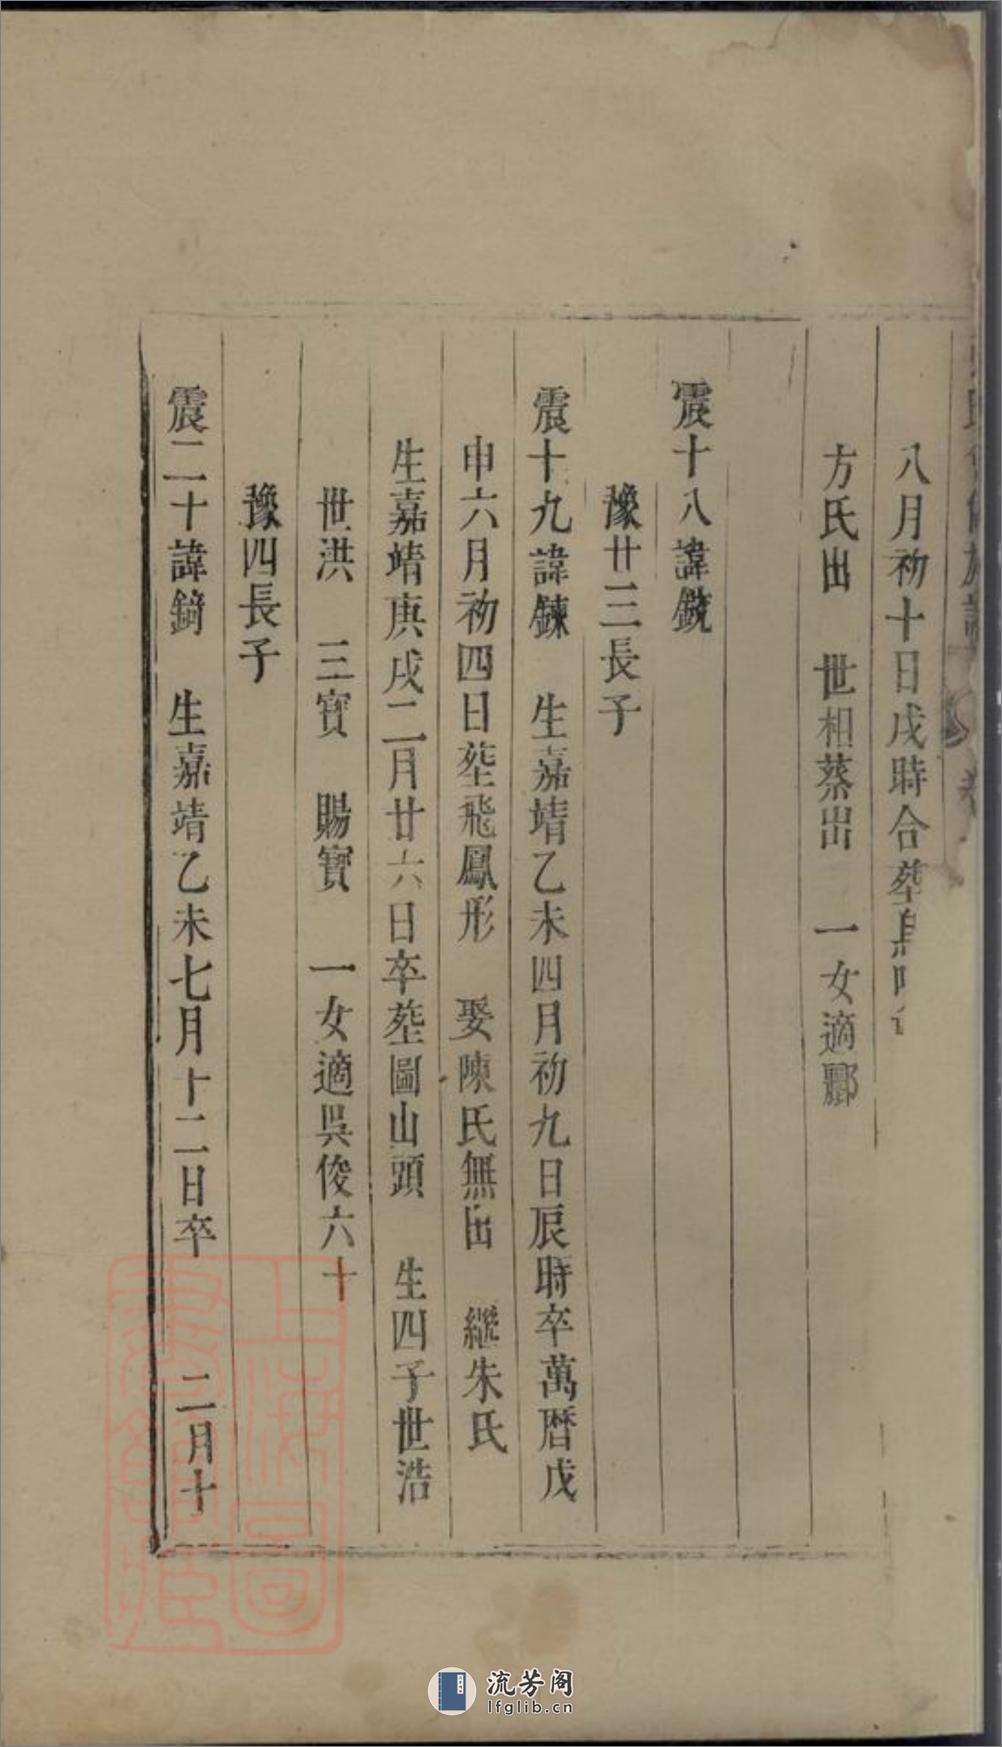 八月初十日戌時合塟
方氏出 世相蒸出 一女適酈
震十八諱鏡
豫廿三長子
震十九諱鍊 生嘉靖乙未四月初九日辰時卒萬曆戊
申六月初四日塟飛鳳形 娶陳氏無出 繼朱氏
生嘉靖庚戌二月廿六日卒塟圖山頭 生四子世浩
世洪 三寳 賜寳 一女適吳俊六十
豫四長子
震二十諱錡 生嘉靖乙未七月十二日卒 二月十
上海圖書館藏
流芳阁
lfglib.cn